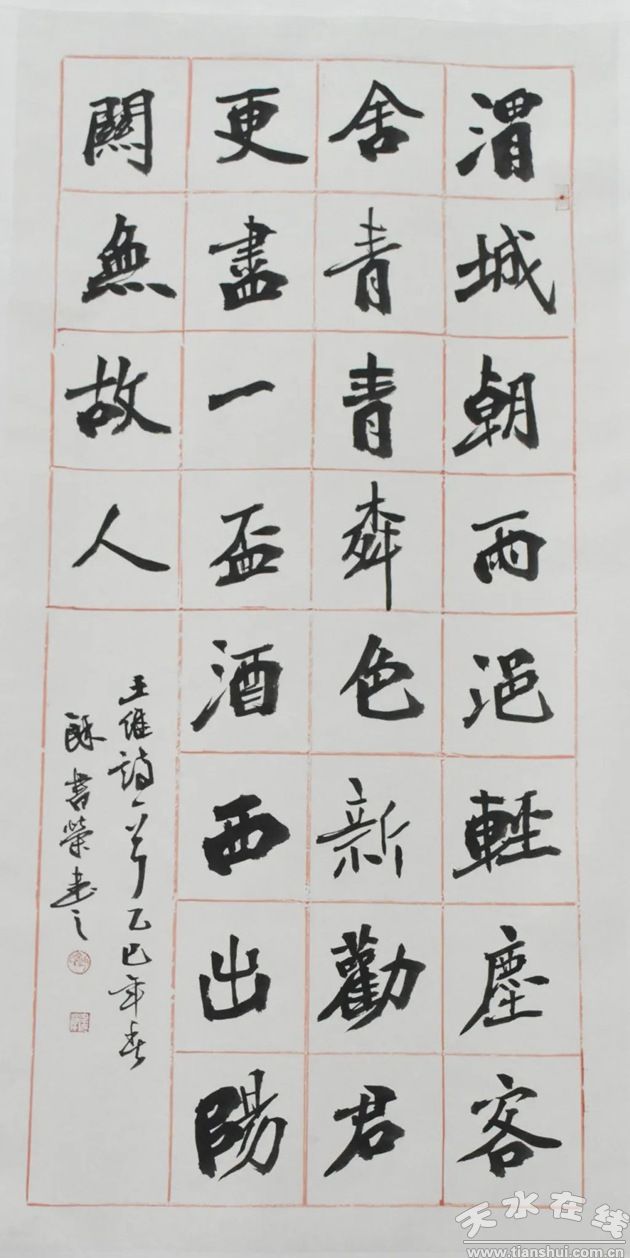 渭城朝雨浥輕塵客
舍青青桞色新勸君
更盡一盃酒西出陽
關無故人
王維詩一首乙巳年春
書榮書之
天水在线
www.tianshui.com.cn